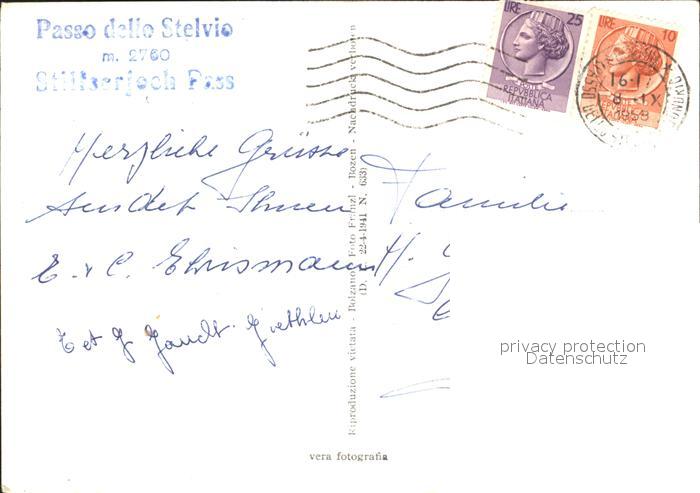 Passo dello Stelvio
m. 2760
Stilfserjoch Pass
LIRE 25
POSTE
REPVBBLICA
ITALIANA
LIRE 10
REPVBBLICA
ITALIANA
16-17
8 IX
1959
Herzliche Grüsse
sendet Ihnen
E. & C. Ehrismann
E et J
Familie
H.
Riproduzione vietata - Bolzano - Foto Fränzl - Bozen - Nachdruck verboten
(D. 22-4-1941 N. 633)
vera fotografia
privacy protection
Datenschutz